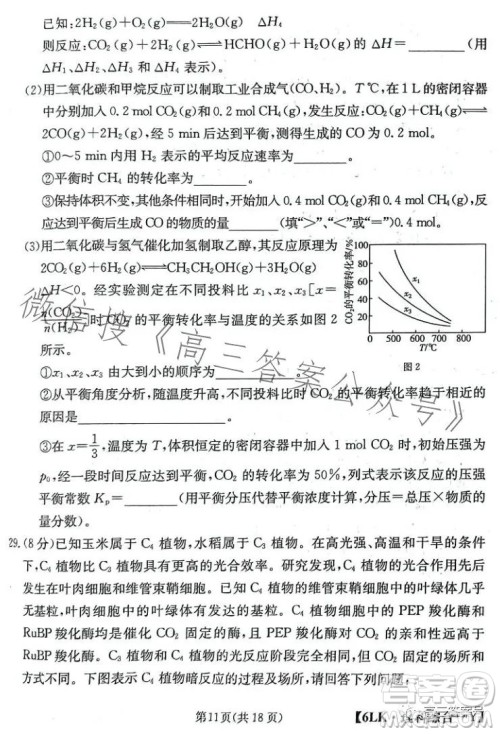 已知:2H₂(g)+O₂(g)═2H₂O(g) ΔH₄
则反应:CO₂(g)+2H₂(g)⇌HCHO(g)+H₂O(g) 的 ΔH=______(用
ΔH₁、ΔH₂、ΔH₃、ΔH₄ 表示)。
(2)用二氧化碳和甲烷反应可以制取工业合成气(CO、H₂)。T℃,在 1 L 的密闭容器
中分别加入 0.2 mol CO₂(g)和 0.4 mol CH₄(g),发生反应:CO₂(g)+CH₄(g)⇌
2CO(g)+2H₂(g),经 5 min 后达到平衡,测得生成的 CO 为 0.2 mol。
①0~5 min 内用 H₂ 表示的平均反应速率为______。
②平衡时 CH₄ 的转化率为______。
③保持体积不变,其他条件不变,开始时加入 0.4 mol CO₂(g)、0.8 mol CH₄(g),反
应达到平衡后生成 CO 的物质的量______(填“>”、“<”或“=”)0.4 mol。
(3)用二氧化碳与氢气催化加氢制取乙醇,其反应原理为
2CO₂(g)+6H₂(g)⇌CH₃CH₂OH(g)+3H₂O(g)
ΔH<0。经实验测定在不同投料比 x₁、x₂、x₃[x=
n(CO₂)/n(H₂)]时 CO₂ 的平衡转化率与温度的关系如图 2
所示:
CO₂的平衡转化率/%
100
80
60
40
20
x₁
x₂
x₃
0 500 600 700 800
T/℃
图 2
①x₁、x₂、x₃ 由大到小的顺序为______。
②从平衡角度分析,不同投料比时 CO₂ 的平衡转化率趋于相近的
原因是______。
③在 x=1/3,温度为 T,体积恒定的密闭容器中加入 1 mol CO₂ 时,初始压强为
p₀,经一段时间反应达到平衡,CO₂ 的转化率为 50%,列式表示该反应的压强
平衡常数 Kₚ=______(用平衡分压代替平衡浓度计算,分压=总压×物质的
量分数)。
29.(8 分)已知玉米属于 C₄ 植物,水稻属于 C₃ 植物。在高光强、高温和干旱的条件
下,C₄ 植物比 C₃ 植物具有更高的光合效率。研究发现,C₄ 植物的光合作用分别
发生在叶肉细胞和维管束鞘细胞中。已知 C₄ 植物的维管束鞘细胞中的叶绿体几乎
无基粒,叶肉细胞中的叶绿体有发达的基粒。C₄ 植物中的 PEP 羧化酶和
RuBP 羧化酶均是催化 CO₂ 固定的酶,且 PEP 羧化酶与 CO₂ 的亲和性远高于
RuBP 羧化酶。C₃ 植物与 C₄ 植物暗反应过程中 CO₂ 固定和还原的场所和
方式不同。下图表示 C₄ 植物暗反应的过程及场所,请回答下列问题:
第11页(共 18 页)
微信搜《高三答案公众号》